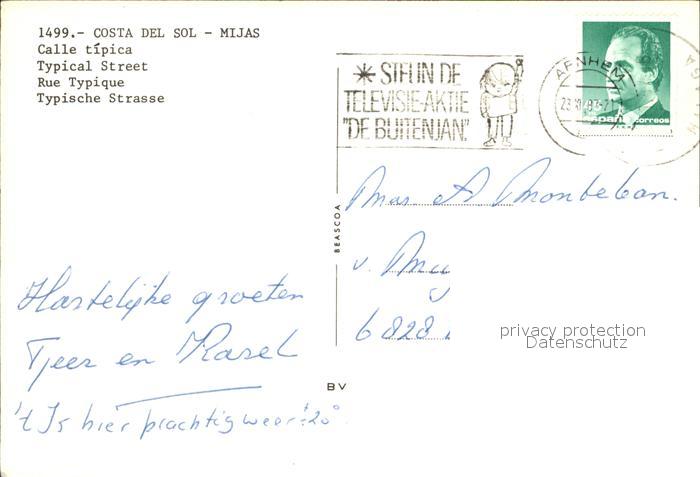 1499.- COSTA DEL SOL - MIJAS
Calle típica
Typical Street
Rue Typique
Typische Strasse
STEUN DE
TELEVISIE-AKTIE
"DE BUITENJAN."
ARNHEM
España correos
BEASCOA
A
6828
privacy protection
Datenschutz
Hartelijke groeten
Tjeer en Karel
BV
't Is hier prachtig weer! 20°